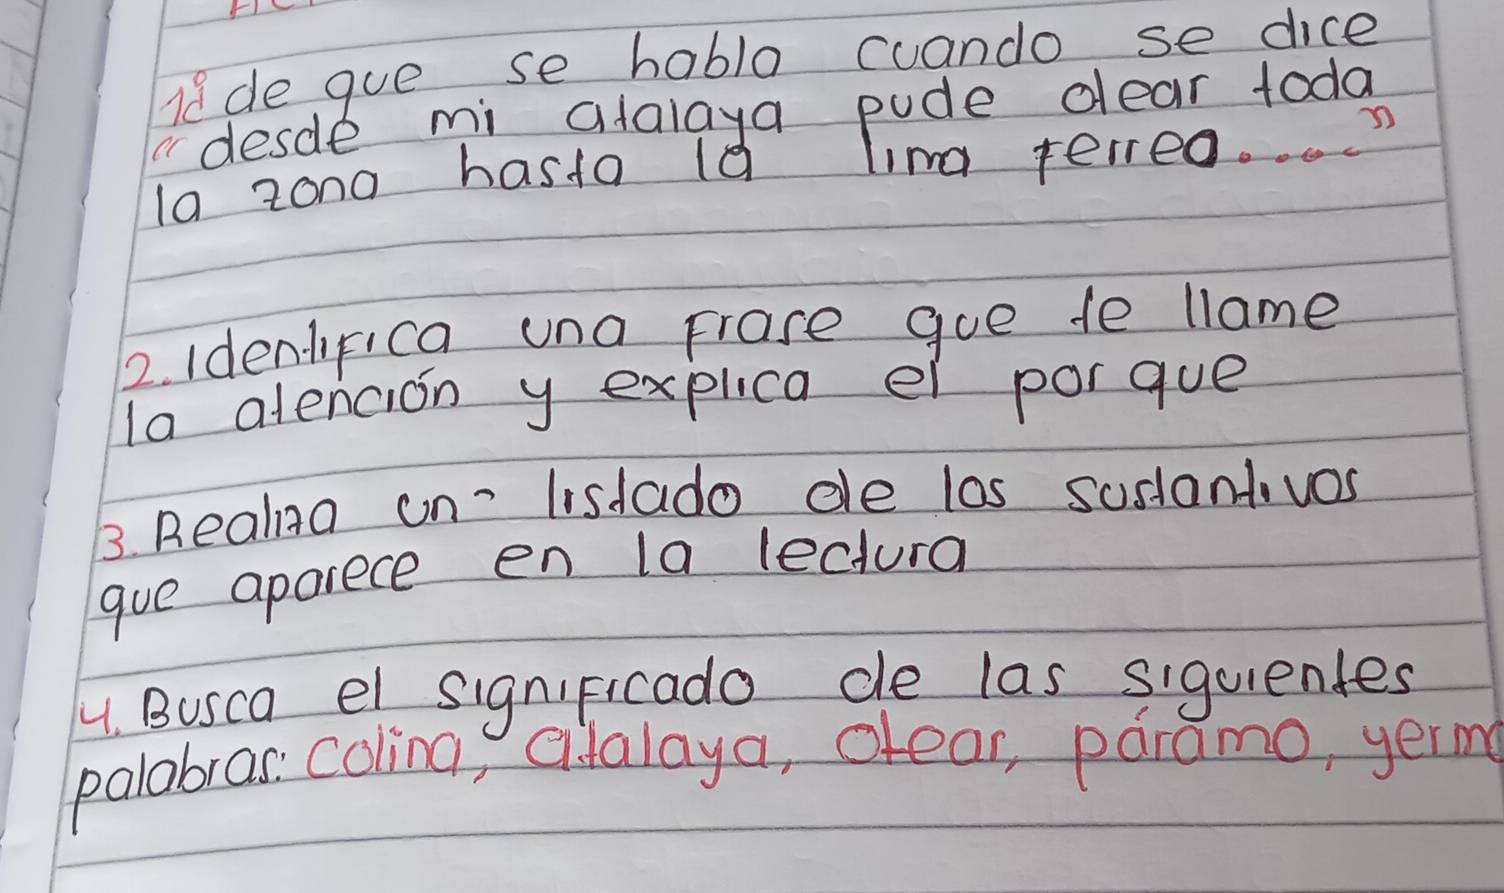 1º de que se habla cuando se dice
"desde mi atalaya pude otear toda
la zona hasta la lima ferrea....."
2. Identifica una frase que te llame
la atención y explica el por que
3. Realiza un listado de los sustantivos
que aparece en la lectura
4. Busca el significado de las siguientes
palabras: colina, atalaya, otear, páramo, yermo